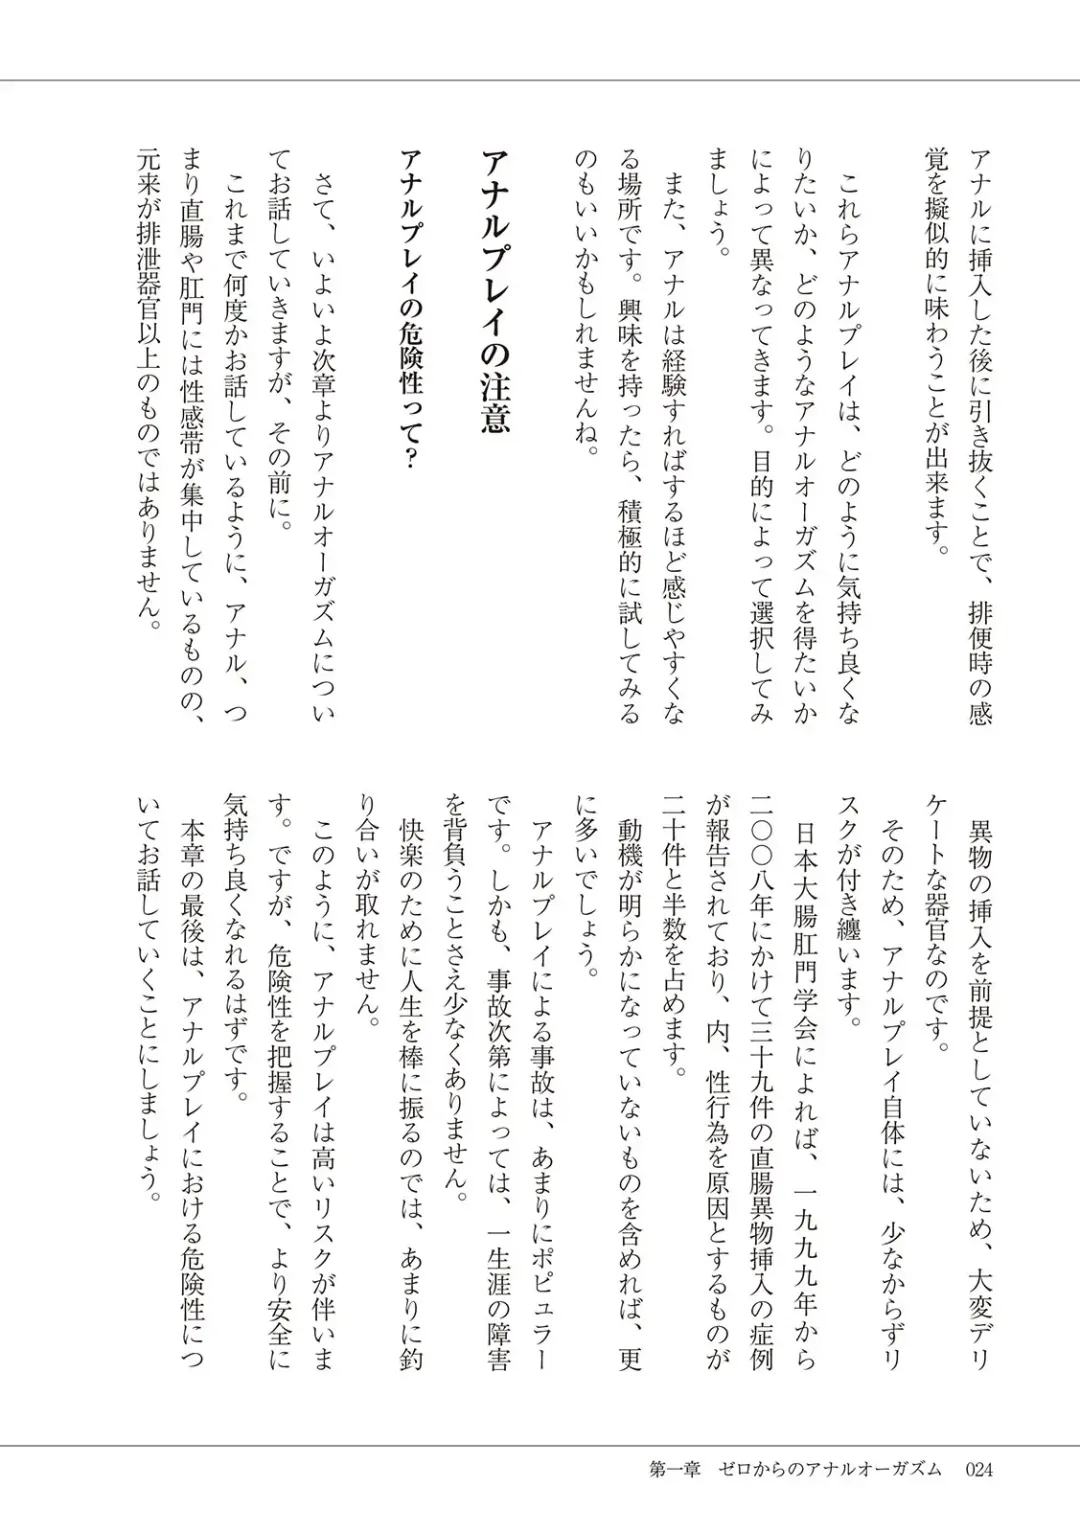 アナルに挿入した後に引き抜くことで、排便時の感
覚を擬似的に味わうことが出来ます。
これらアナルプレイは、どのように気持ち良くな
りたいか、どのようなアナルオーガズムを得たいか
によって異なってきます。目的によって選択してみ
ましょう。
また、アナルは経験すればするほど感じやすくな
る場所です。興味を持ったら、積極的に試してみる
のもいいかもしれませんね。
アナルプレイの注意
アナルプレイの危険性って？
さて、いよいよ次章よりアナルオーガズムについ
てお話していきますが、その前に。
これまで何度かお話しているように、アナル、つ
まり直腸や肛門には性感帯が集中しているものの、
元来が排泄器官以上のものではありません。
異物の挿入を前提としていないため、大変デリ
ケートな器官なのです。
そのため、アナルプレイ自体には、少なからずリ
スクが付き纏います。
日本大腸肛門学会によれば、一九九九年から
二〇〇八年にかけて三十九件の直腸異物挿入の症例
が報告されており、内、性行為を原因とするものが
二十件と半数を占めます。
動機が明らかになっていないものを含めれば、更
に多いでしょう。
アナルプレイによる事故は、あまりにポピュラー
です。しかも、事故次第によっては、一生涯の障害
を背負うことさえ少なくありません。
快楽のために人生を棒に振るのでは、あまりに釣
り合いが取れません。
このように、アナルプレイは高いリスクが伴いま
す。ですが、危険性を把握することで、より安全に
気持ち良くなれるはずです。
本章の最後は、アナルプレイにおける危険性につ
いてお話していくことにしましょう。
第一章 ゼロからのアナルオーガズム 024